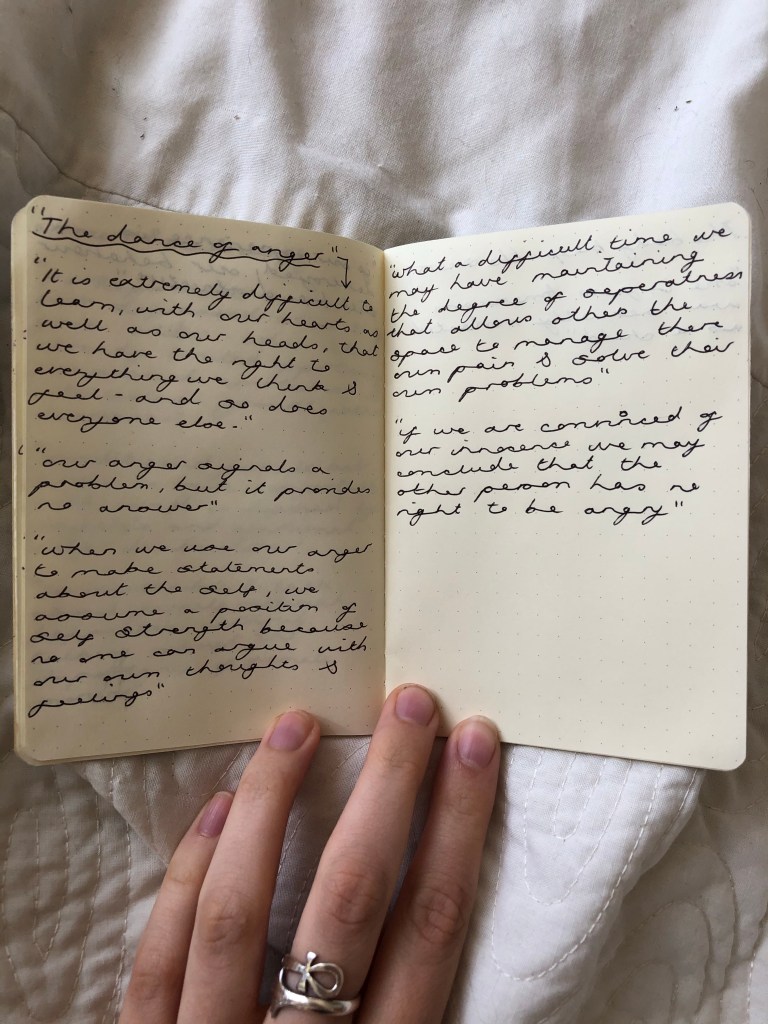 "The dance of anger"
"It is extremely difficult to
learn, with our hearts as
well as our heads, that
we have the right to
everything we think &
feel - and so does
everyone else."
"our anger signals a
problem, but it provides
no answer"
"when we use our anger
to make statements
about the self, we
assume a position of
self strength because
no one can argue with
our own thoughts &
feelings"
"what a difficult time we
may have maintaining
the degree of seperatness
that allows othes the
space to manage there
own pain & solve their
own problems"
"if we are convinced of
our innocence we may
conclude that the
other person has no
right to be angry"